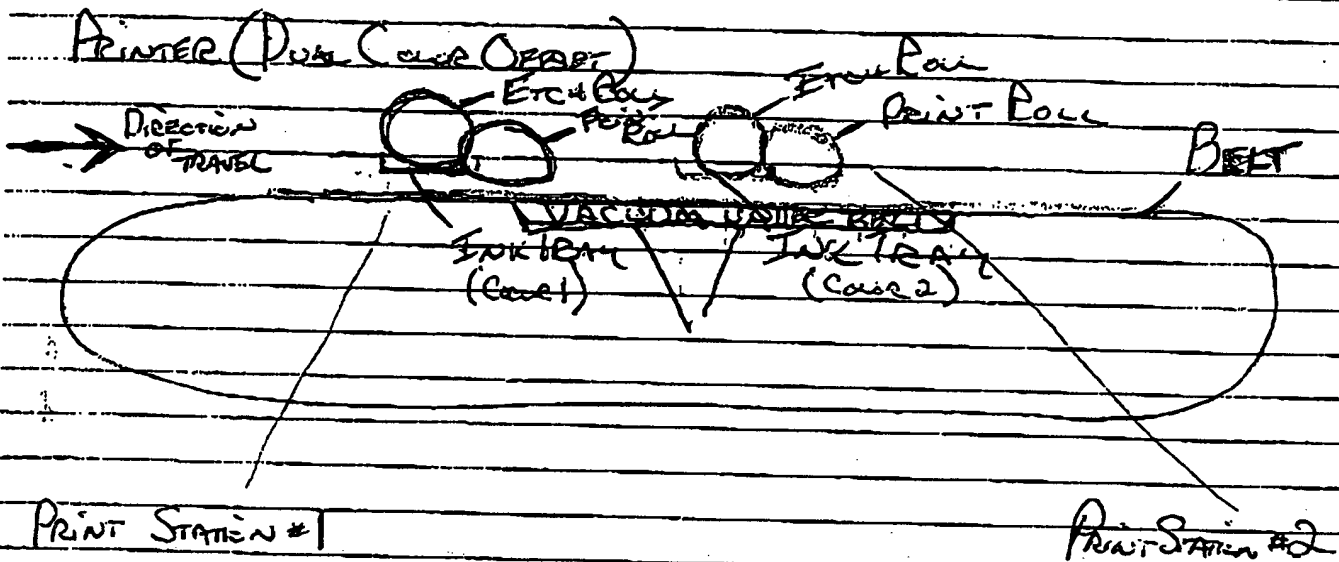 PRINTER (DUAL COLOR OFFSET)
ETCH ROLL
ETCH ROLL
PRINT ROLL
PRINT ROLL
DIRECTION
OF
TRAVEL
BELT
VACUUM UNDER BELT
INK TRAY
(COLOR 1)
INK TRAY
(COLOR 2)
PRINT STATION #1
PRINT STATION #2